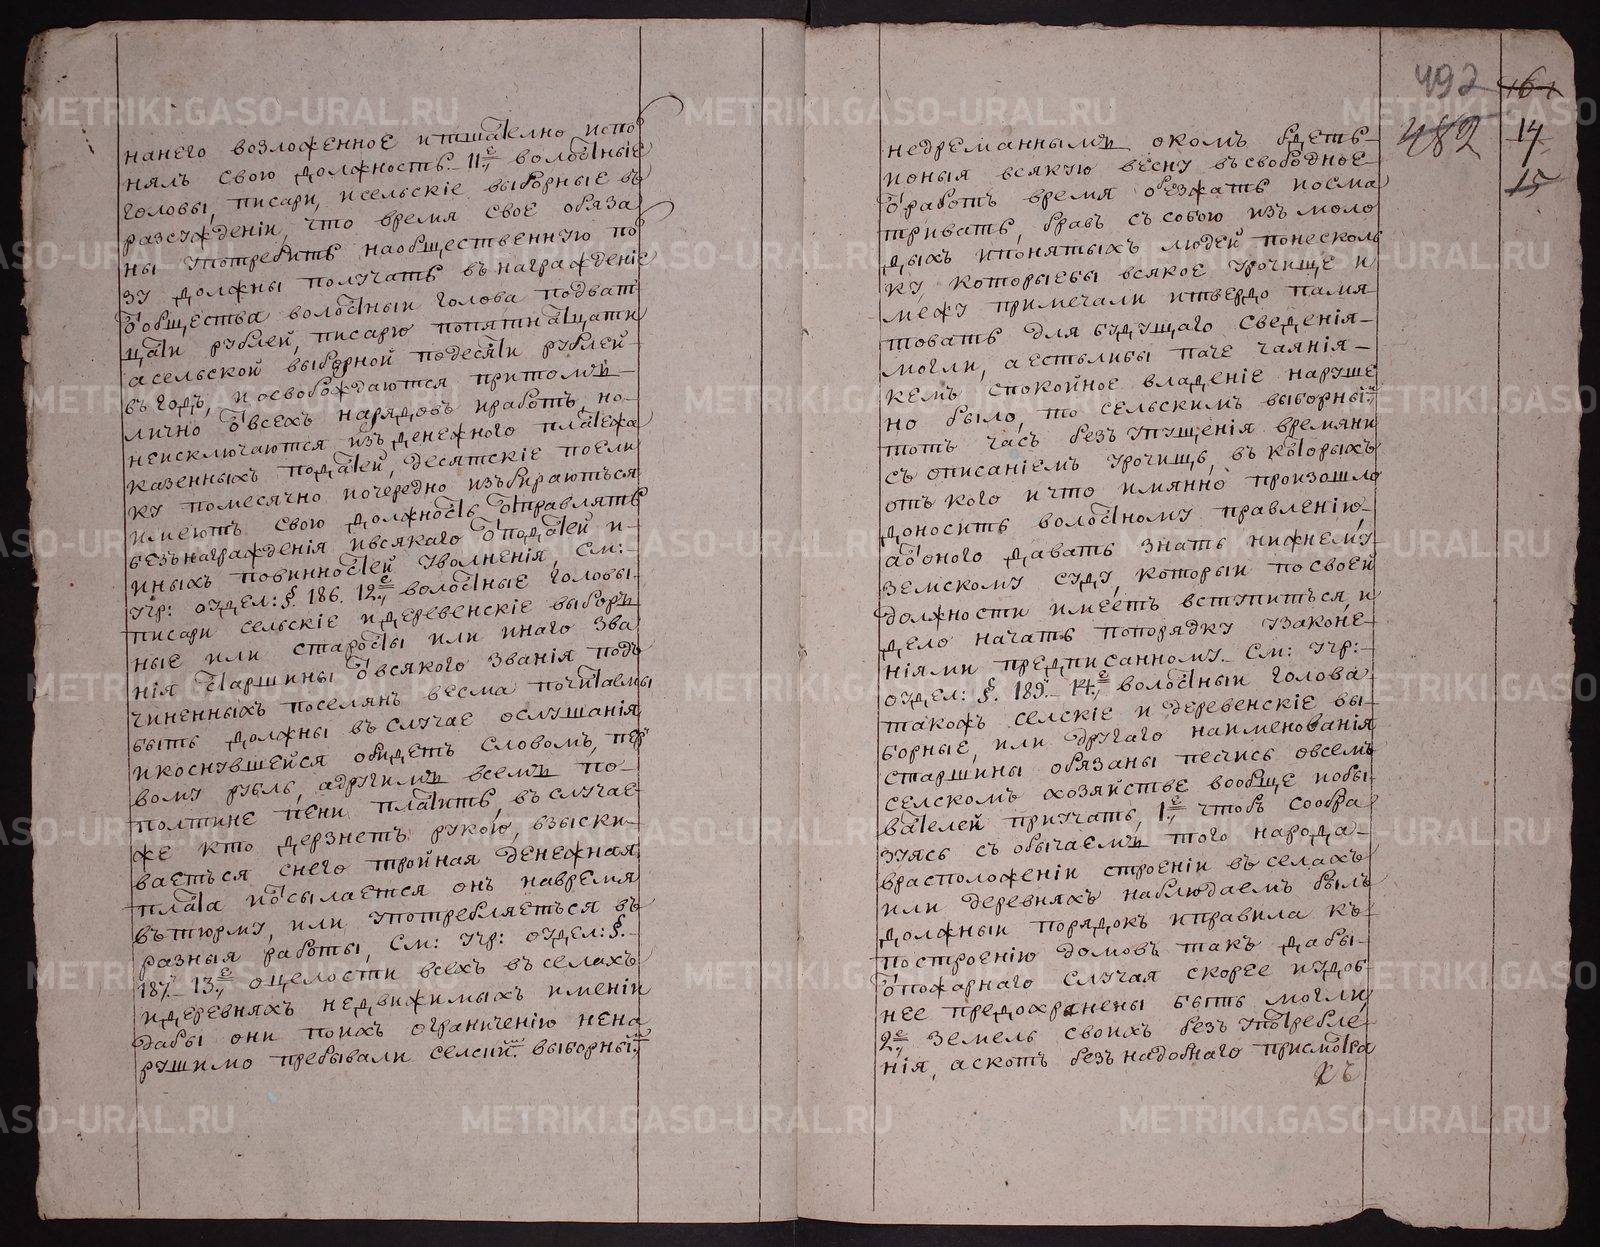 нанего возложенное итшателно испо
нялъ свою должность. 11.е волостные
головы, писари, исельскіе выборные въ
разсужденіи, что время свое обяза
ны употребить наобщественную по
зу должны получать въ награжденіе
от общества волостный голова подват
цати рублей, писарю попятнатцати
асельской выборной подесяти рублей
въ годъ, и освобождаются притомъ
лично от всехъ нарядовъ иработъ, но
неисключаются изъ денежного платежа
казенныхъ податей, десятскіе поели
ку помесячно почередно изъбираються
имеютъ свою должность отправлять
безънагражденія ивсякаго от податей и
иныхъ повинностей уволненія, См:
Учр: отдел: §. 186. 12.е волостные головы
писари сельские идеревенскіе выборн
ные или старосты или инаго зва
нія старшины от всякого званія подъ
чиненныхъ поселянъ весма почитаемы
быть должны въ случае ослушанія
икоснувшейся обидетъ словомъ, пер
вому рубль, адругимъ всемъ по
полтине пени платить, въ случае
же кто дерзнетъ рукою, взыски
ваеться снего тройная денежная
плата и отсылается онъ навремя
въ тюрму, или употребляеться въ
разныя работы, См: Учр: отдел: §.
187. 13.е оцелости всехъ въ селахъ
идеревняхъ недвижимыхъ именіи
дабы они поихъ ограниченію нена
рушимо пребывали селский выборный
492 161
482 14
15
недреманнымъ окомъ бдеть
поныя всякую весну въсвободное
от работъ время объезжать иосма
тривать, бравъ съ собою изъ моло
дыхъ ипонятыхъ людей понесколь
ку, которыебы всякое урочище и
межу примечали итвердо памя
товать для будущаго сведенія
могли, аестьлибы паче чаянія
кемъ спокойное владеніе наруше
но было, то сельскимъ выборный
тотъ часъ безъ упущенія времяни
съ описаніемъ урочищь, въ которыхъ
отъ кого ичто имянно произошло
доносить волостному правленію
аот оного давать знать нижнему
земскому суду, которыи посвоей
должности имеетъ вступиться, и
дело начать попорядку узаконе
ніями предписанному. См: Учр:
отдел: §. 189. 14.е волостныи голова
такожъ селскіе и деревенскіе вы
борные, или другаго наименованія
старшины обязаны пещись овсемъ
селскомъ хозяйстве вообще иобы
вателей пріучать, 1.е чтобъ сообра
зуясь съ обычаемъ того народа
врасположеніи строеніи въ селахъ
или деревняхъ наблюдаемъ былъ
должныи порядокъ иправила къ
построенію домовъ такъ дабы
от пожарнаго случая скорее иудоб
нее предохранены быть могли,
2.е земель своихъ безъ употребле
нія, аскотъ безъ надобнаго присмотра